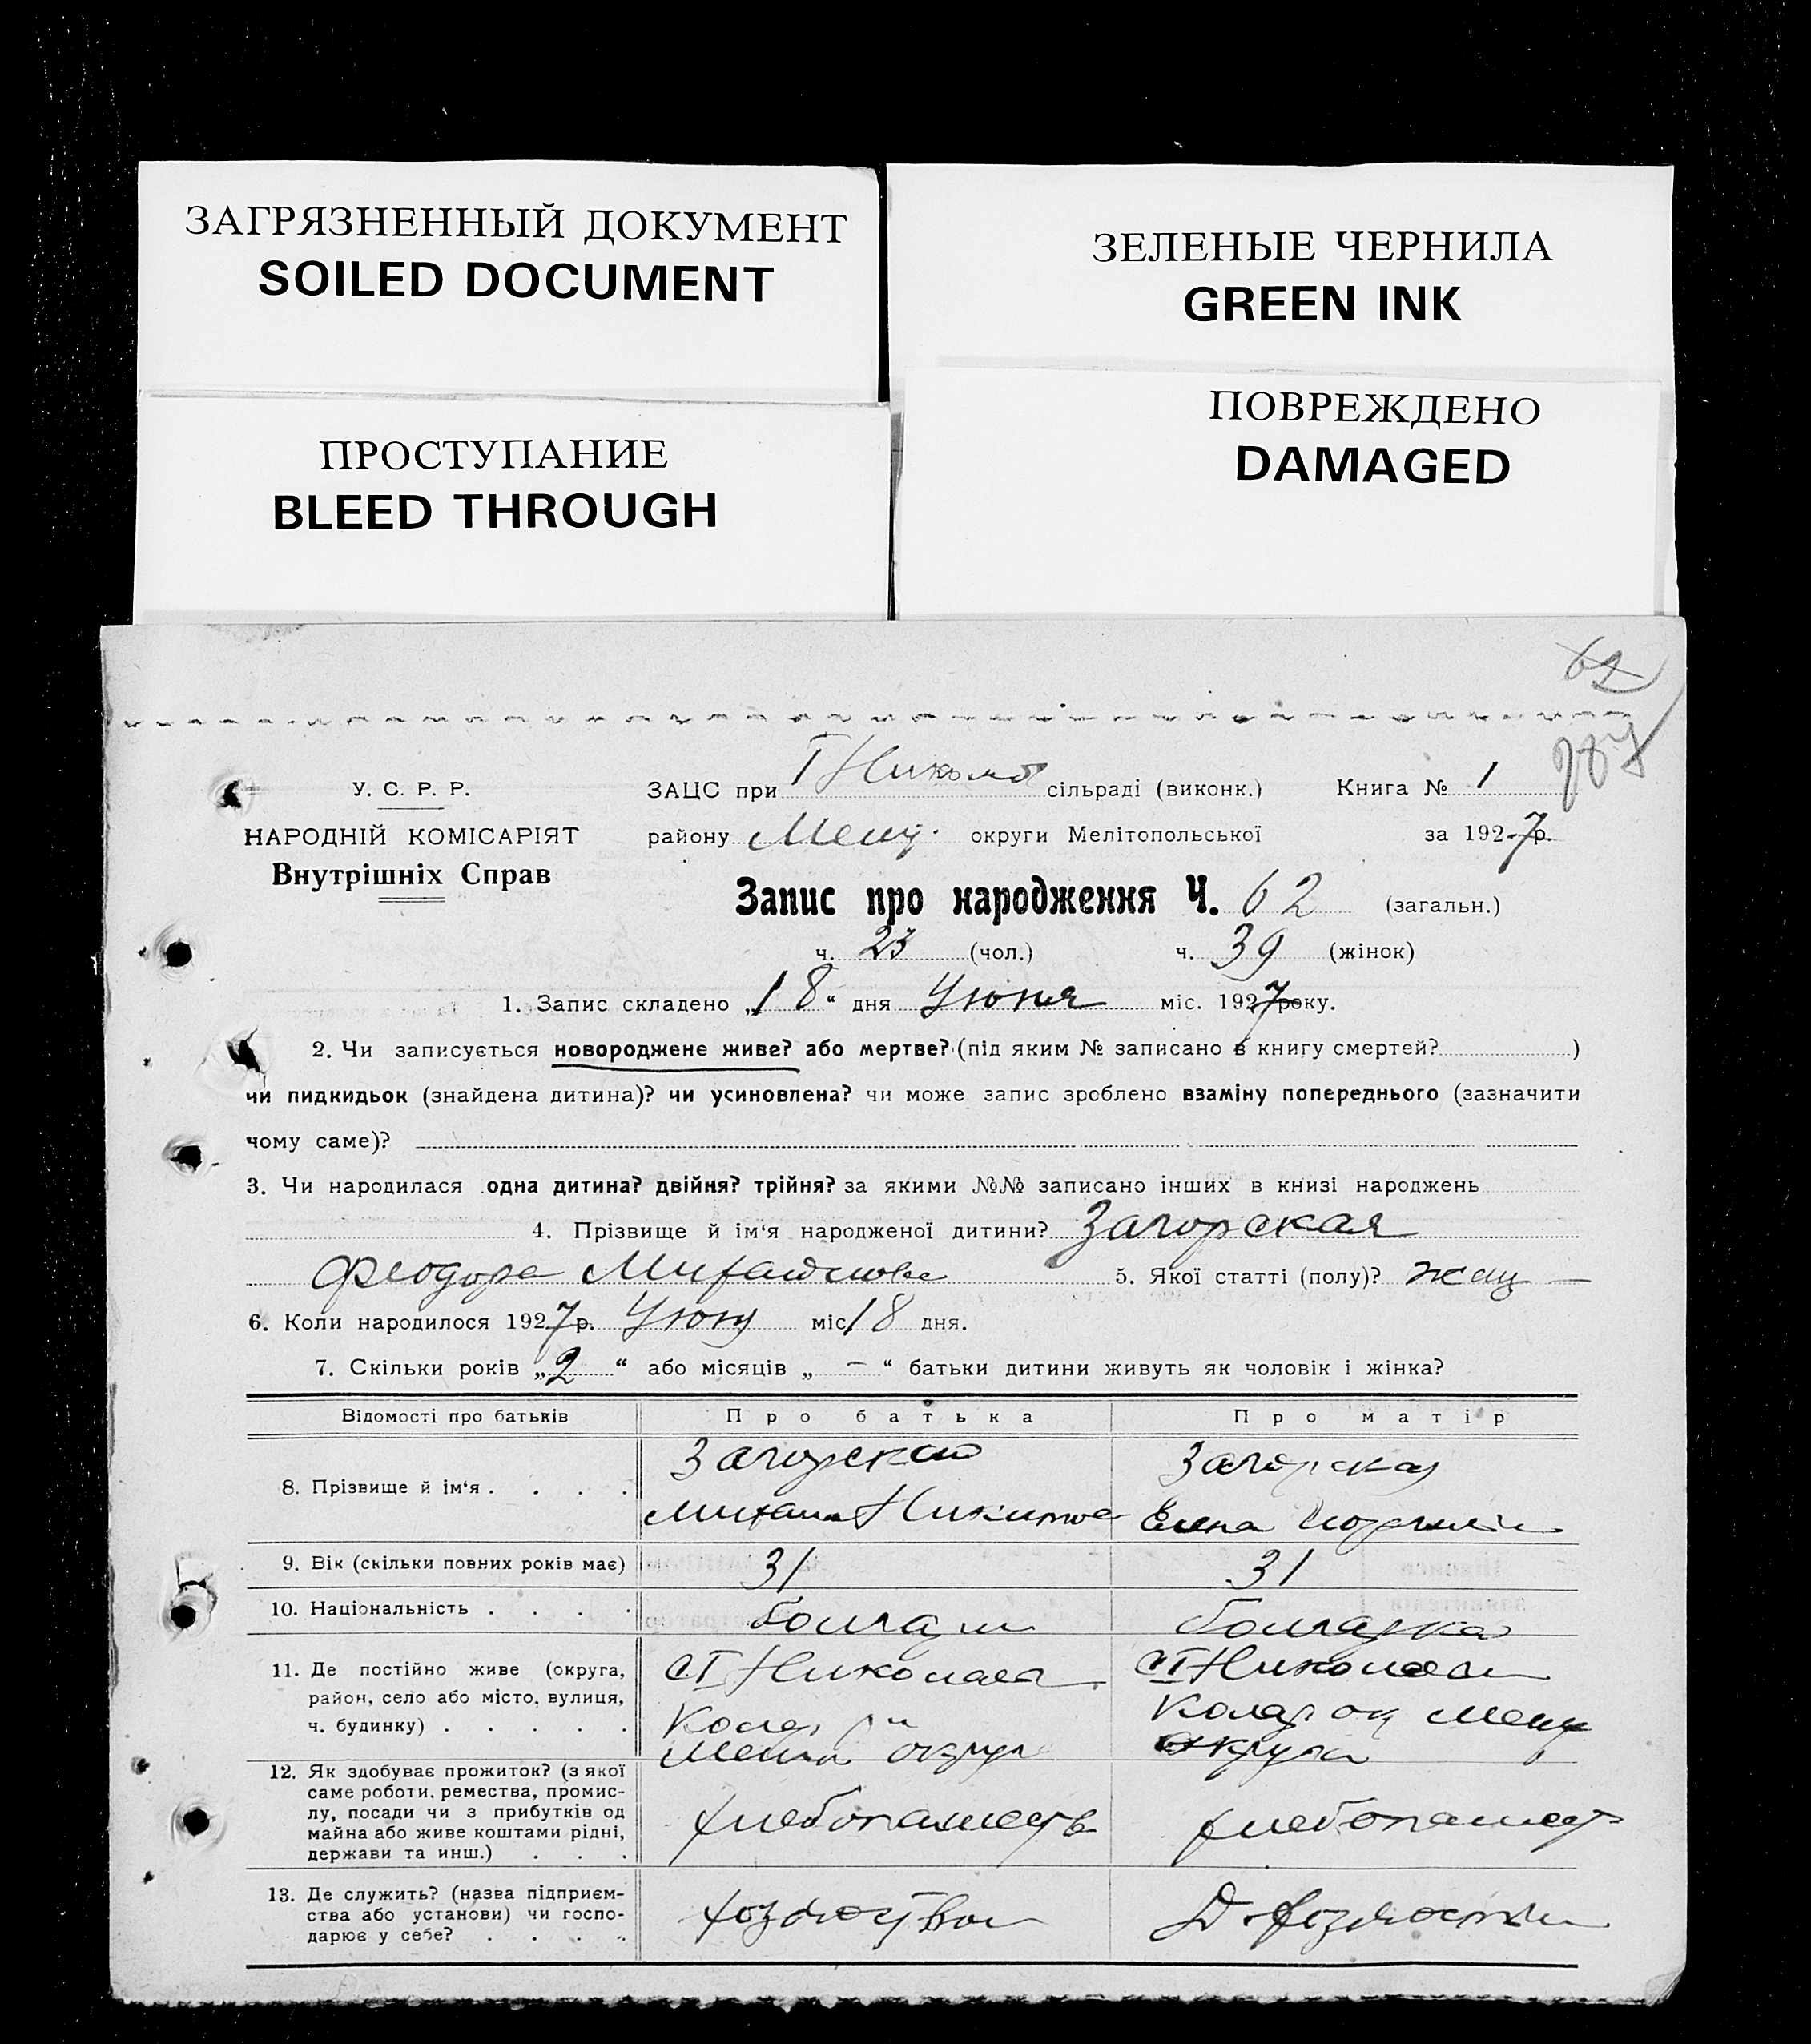 ЗАГРЯЗНЕННЫЙ ДОКУМЕНТ
SOILED DOCUMENT
ЗЕЛЕНЫЕ ЧЕРНИЛА
GREEN INK
ПРОСТУПАНИЕ
BLEED THROUGH
ПОВРЕЖДЕНО
DAMAGED
62
У. С. Р. Р.
НАРОДНІЙ КОМІСАРІЯТ
Внутрішніх Справ
ЗАЦС при сільраді (виконк.) Книга № 1
району округи Мелітопольської за 1927р.
Запис про народження Ч. 62 (загальн.)
ч. 23 (чол.) ч. 39 (жінок)
1. Запис складено „18“ дня Июня міс. 1927року.
2. Чи записується новороджене живе? або мертве? (під яким № записано в книгу смертей? )
чи пидкидьок (знайдена дитина)? чи усиновлена? чи може запис зроблено взаміну попереднього (зазначити
чому саме)?
3. Чи народилася одна дитина? двійня? трійня? за якими №№ записано інших в книзі народжень
4. Прізвище й ім‘я народженої дитини? Загорская
Феодора 5. Якої статті (полу)?
6. Коли народилося 1927р. міс 18 дня.
7. Скільки років „2“ або місяців „—“ батьки дитини живуть як чоловік і жінка?
Відомості про батьків Про батька Про матір
8. Прізвище й ім‘я . . . . Загорский Загорская
Михаил Елена
9. Вік (скільки повних років має) 31 31
10. Національність . . . . болгарин болгарка
11. Де постійно живе (округа,
район, село або місто, вулиця,
ч. будинку) . . . . .
округа
12. Як здобуває прожиток? (з якої
саме роботи, ремества, промис-
лу, посади чи з прибутків од
майна або живе коштами рідні,
держави та инш.) . . . хлебопашеств хлебопашест
13. Де служить? (назва підприєм-
ства або установи) чи госпо-
дарює у себе? . . . .